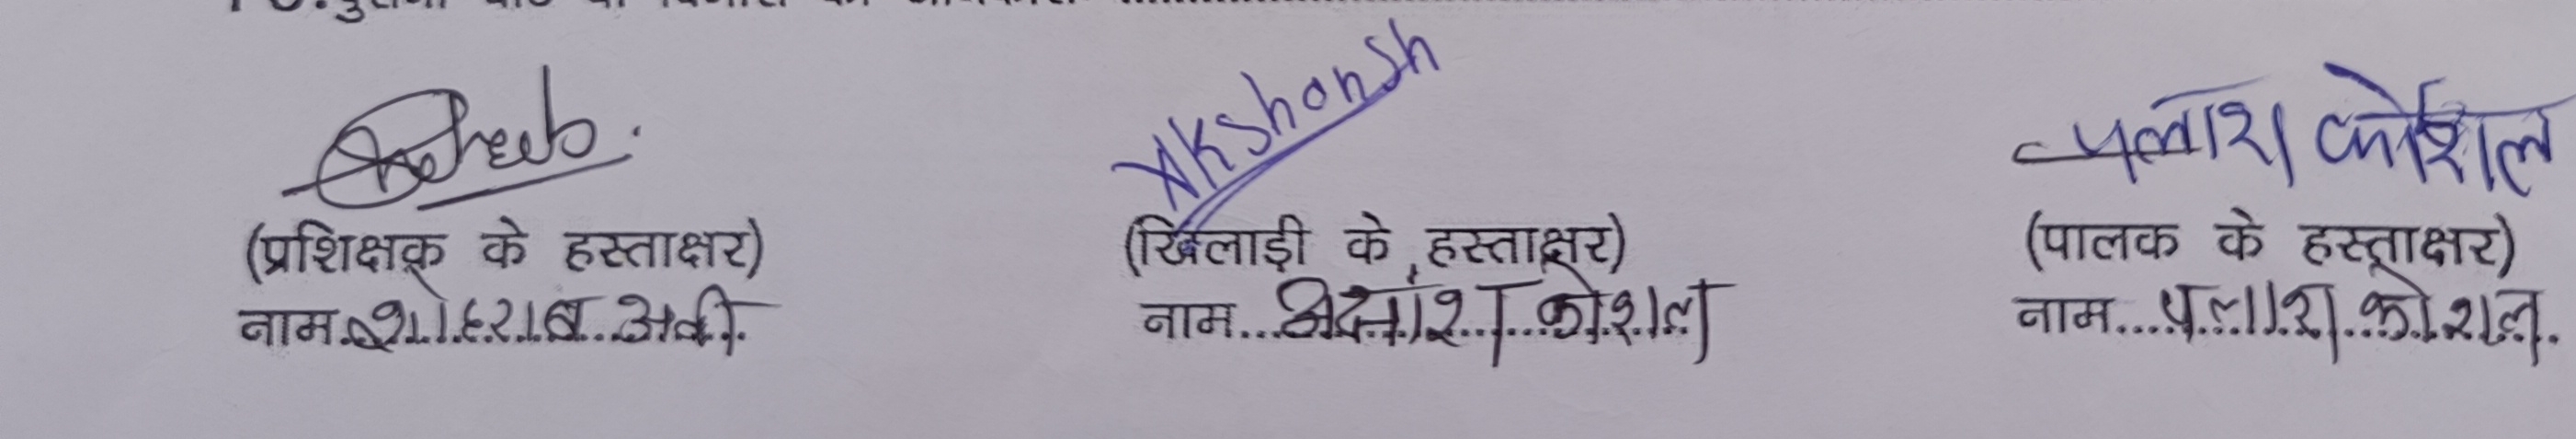 Akshansh
पलाश कौशल
(प्रशिक्षक के हस्ताक्षर) (खिलाड़ी के हस्ताक्षर) (पालक के हस्ताक्षर)
नाम..शोहराब..अली. नाम...अक्षांश...कोशल नाम...पलाश.कोशल.